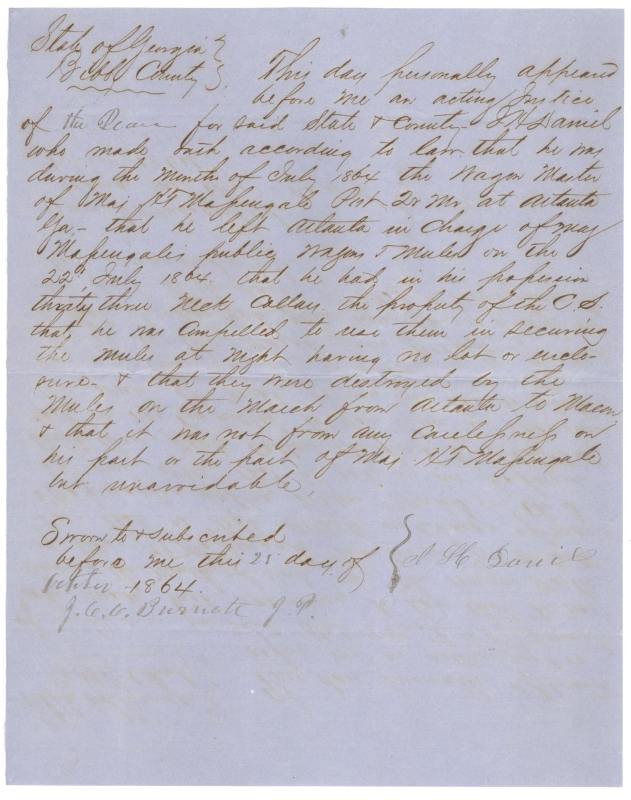 State of Georgia }
Bibb County } This day personally appeared
before me an acting Justice
of the Peace for said State & County Daniel
who made oath according to law that he was
during the Month of July 1864 the Wagon Master
of Maj H T Massengale Post Qr Mr at Atlanta
Ga - that he left Atlanta in charge of Maj
Massengales public Wagons & Mules on the
22d July 1864. that he had in his possession
thirty three Neck Collars the property of the C. S.
that he was Compelled to use them in securing
the mules at night having no lot or enclo-
sure - & that they were destroyed by the
Mules on the March from Atlanta to Macon
& that it was not from any Carelessness on
his part or the part of Maj H T Massengale
but unavoidable,
Sworn to & subscribed
before me this 25 day of } H Daniel
October 1864.
Burnett J. P.